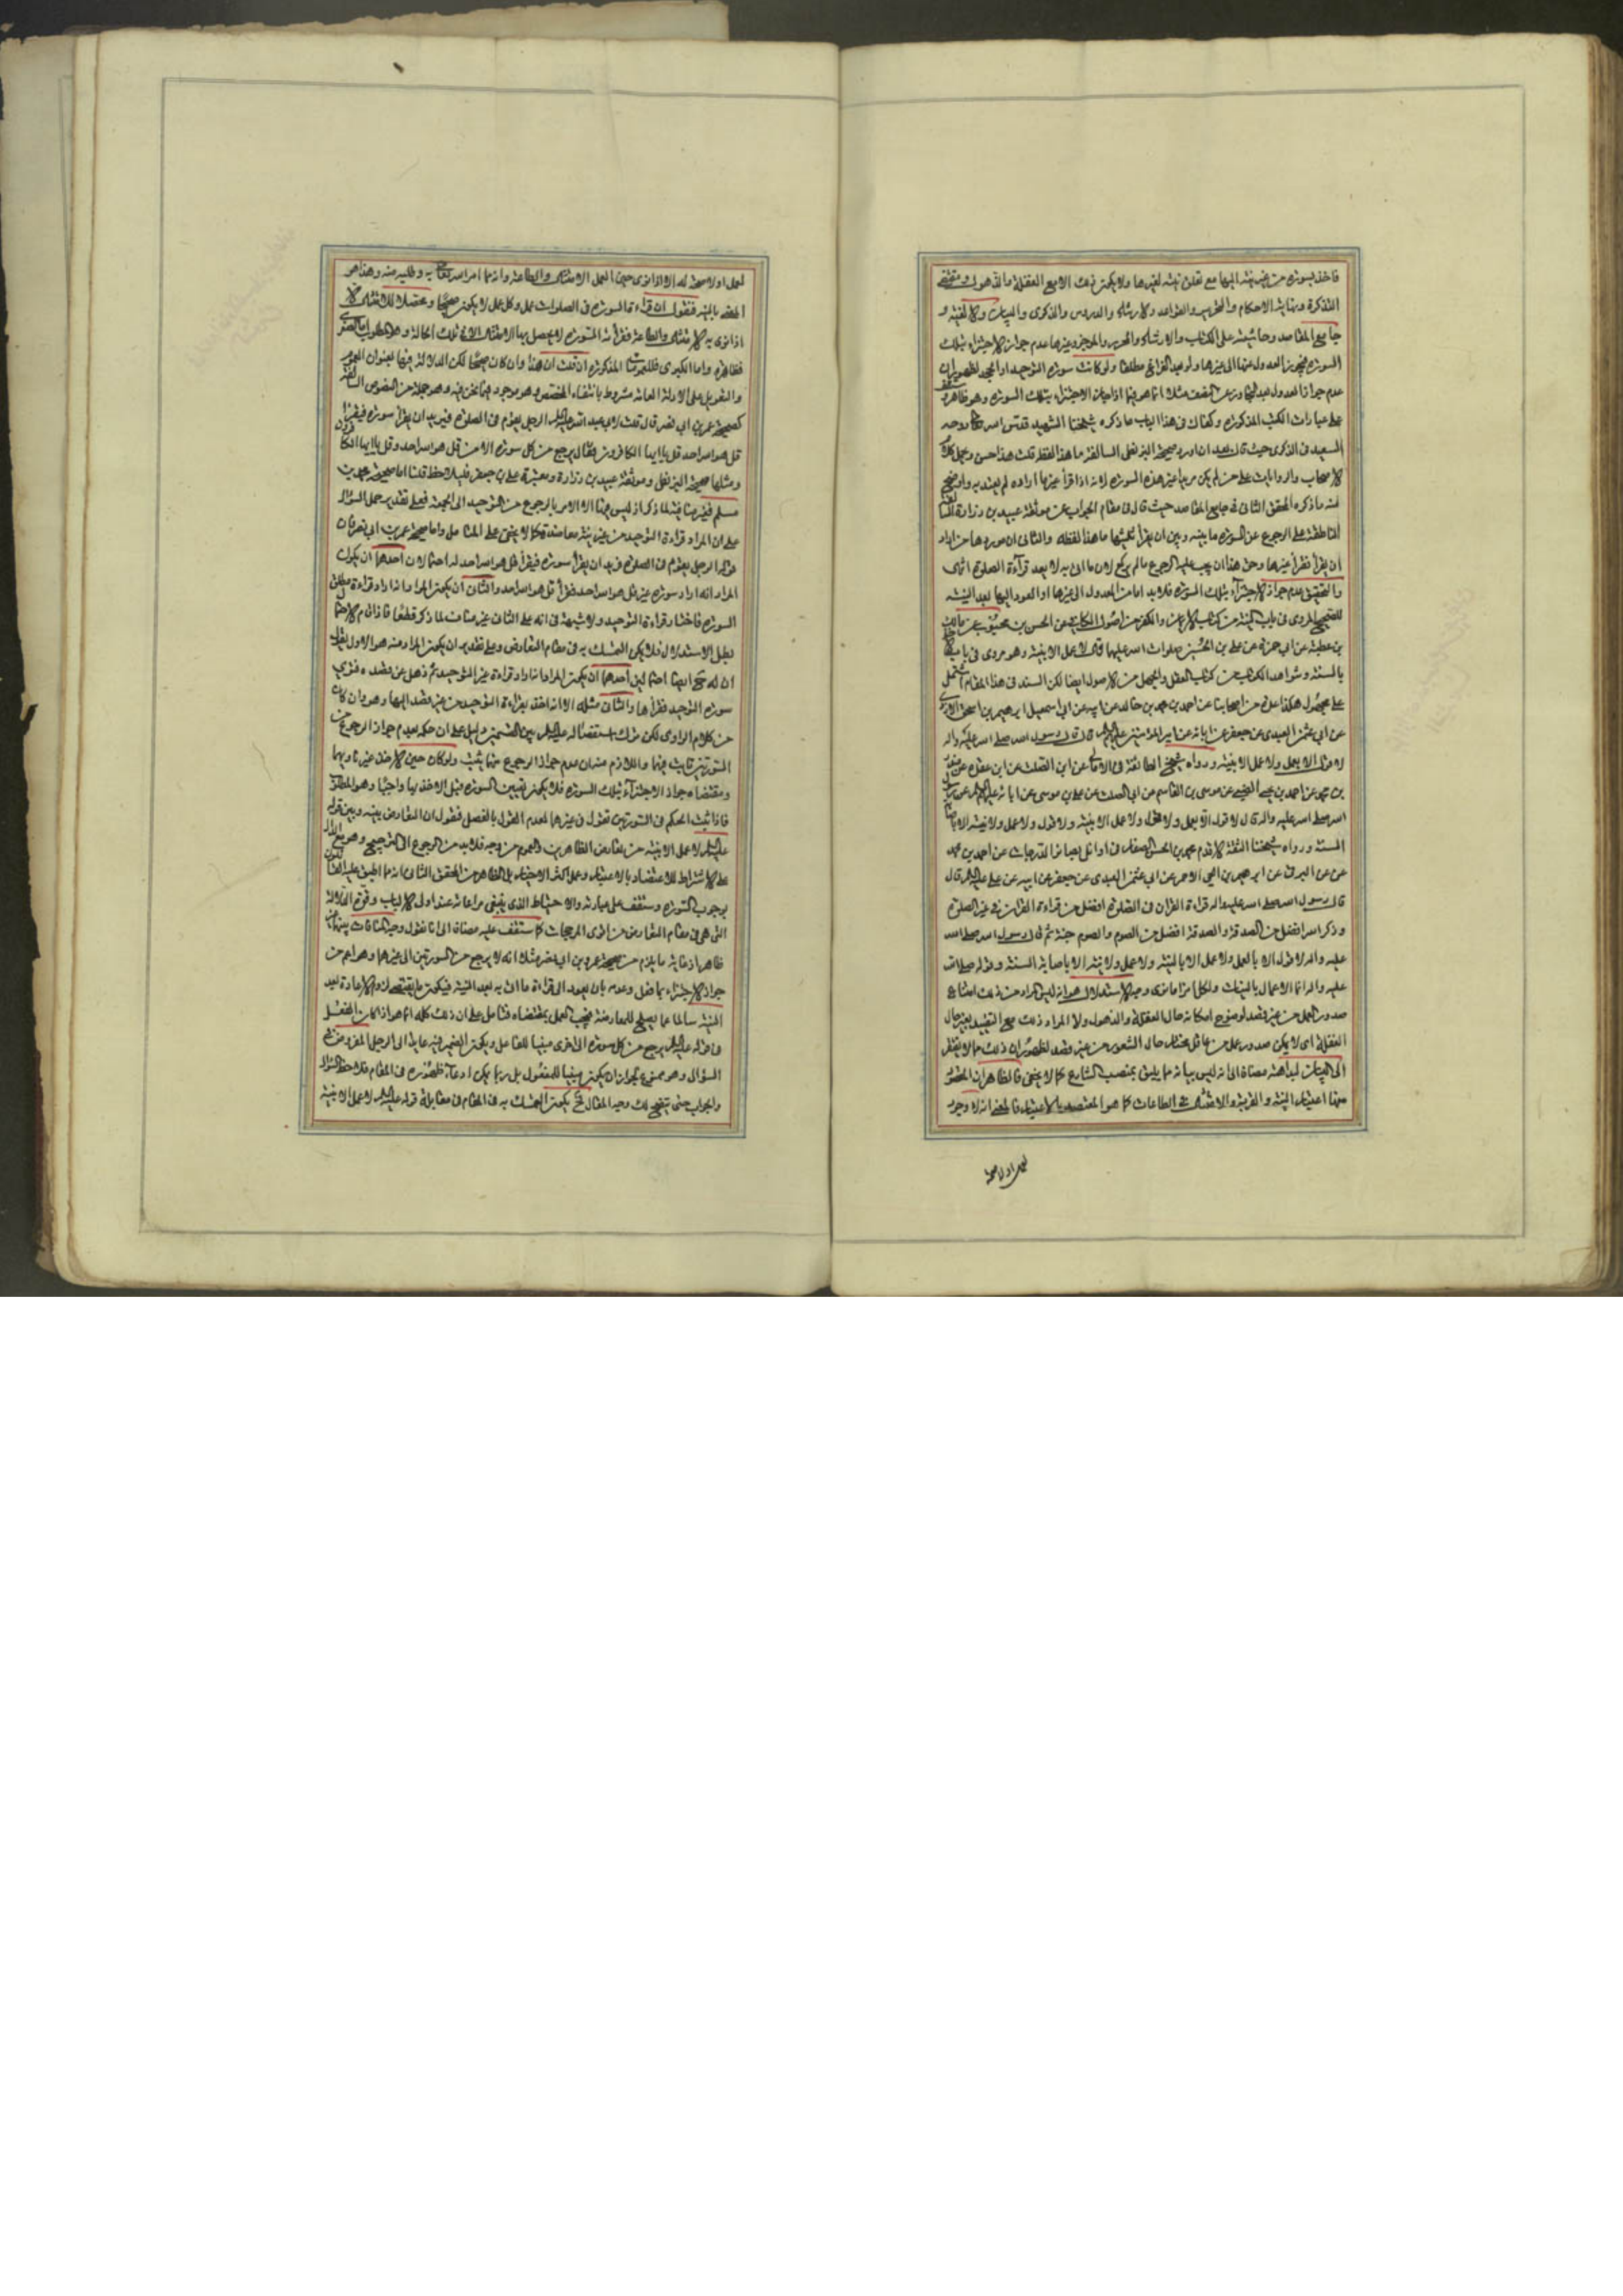 فاخذ بسورة من غير نيته اليها مع تعلق نيته لغيرها ولا يكون ذلك الا مع الغفلة والذهول ومقتضى
التذكرة ونهاية الاحكام والتحرير والقواعد والارشاد والدروس والذكرى والبيان والالفية و
جامع المقاصد وحاشيته على الكتاب والارشاد والتحرير والموجز وغيرها عدم جواز الاجتزاء بتلك
السورة فيجوز العدول عنها الى غيرها ولو بعد الفراغ مطلقا ولو كانت سورة التوحيد او الجحد لظهور ان
عدم جواز العدول بعد التجاوز عن النصف مثلا انما هو فيما اذا جاز الاجتزاء بتلك السورة وهو ظاهر
على عبارات الكتب المذكورة وكفاك في هذا الباب ما ذكره شيخنا الشهيد قدس الله تعالى روحه
السعيد في الذكرى حيث قال بعد ان اورد صحيحة البزنطي السالفة ما هذا لفظه قلت هذا حسن ويحمل كلام
الاصحاب والروايات على من لم يكن مريدا غير هذه السورة لانه اذا قرأ غيرها اراده لم يعتد به واوضح
منه ما ذكره المحقق الثاني في جامع المقاصد حيث قال في مقام الجواب عن موثقة عبيد بن زرارة
الناطقة على الرجوع عن السورة ما بينه وبين ان يقرأ ثلثيها ما هذا لفظه والثاني ان موردها من اراد
ان يقرأ فقرأ غيرها وحق هذا ان يجب عليه الرجوع ما لم يركع لان ما اتى به لا يعد قرآءة الصلوة انتهى
والتحقيق عدم جواز الاجتزآء بتلك السورة فلا بد اما من العدول الى غيرها او العود اليها بعد النية
للصحيح المروي في باب النية من كتاب الايمان والكفر من اصول الكافي عن الحسن بن محبوب عن مالك
بن عطية عن ابي حمزة عن علي بن الحسين صلوات الله عليهما قال لا عمل الا بنية وهو مروي في باب الاخذ
بالسنة وشواهد الكتاب من كتاب العقل والجهل من الاصول ايضا لكن السند في هذا المقام اشتمل
على مجهول هكذا عدة من اصحابنا عن احمد بن محمد بن خالد عن ابيه عن ابي اسمعيل ابرهيم بن اسحق الازدي
عن ابي عثمن العبدي عن جعفر عن ابائه عن امير المؤمنين عليه السلام قال قال رسول الله صلى الله عليه واله
لا قول الا بعمل ولا عمل الا بنية ورواه شيخ الطائفة في الامالي عن ابن الصلت عن ابن عقدة عن
بن محمد عن احمد بن يحيى الضبي عن موسى بن القاسم عن ابي الصلت عن علي بن موسى عن ابائه عليهم السلام عن رسول
الله صلى الله عليه واله قال لا قول الا بعمل ولا قول ولا عمل الا بنية ولا قول ولا عمل ولا نية الا باصابة
السنة ورواه شيخنا الثقة الاقدم محمد بن الحسن الصفار في اوائل بصائر الدرجات عن احمد بن محمد
عن البرقي عن ابرهيم بن اسحق الاحمر عن ابي عثمن العبدي عن جعفر عن ابيه عن علي عليه السلام قال
قال رسول الله صلى الله عليه واله قراءة القران في الصلوة افضل من قراءة القران في غير الصلوة
وذكر الله افضل من الصدقة والصدقة افضل من الصوم والصوم جنة ثم قال رسول الله صلى الله
عليه واله لا قول الا بالعمل ولا عمل الا بالنية ولا عمل ولا نية الا باصابة السنة وقوله صلى الله
عليه واله انما الاعمال بالنيات ولكل امرئ ما نوى وجه الاستدلال هو انه ليس المراد من ذلك امتناع
صدور العمل من غير قصد لوضوح امكانه حال الغفلة والذهول ولا المراد ذلك مع التقييد بغير حال
الغفلة اى لا يمكن صدور عمل من عاقل مختار حال الشعور من غير قصد لظهور ان ذلك مما لا يفتقر
الى البيان لبداهته مضافا الى انه ليس بيانه مما يليق بمنصب الشارع كما لا يخفى فالظاهر ان المقصود
منها اعتبار النية والقربة والامتثال في الطاعات كما هو المعتضد بالاعتبار فالمعنى انه لا وجود
لعمل او لا صحة
لعمل او لا صحة له الا اذا نوى حين العمل الامتثال والطاعة وانه مما امر الله تعالى به وطلبه منه وهذا هو
المقصد بالنية فنقول ان قراءة السورة في الصلوات عمل وكل عمل لا يكون صحيحا ومحصلا للامتثال الا
اذا نوى به الامتثال والطاعة فقرأة السورة لا يحصل بها الامتثال الا في تلك الحالة وهو المطلوب اما الصغرى
فظاهرة واما الكبرى فللعمومات المذكورة ان قلت ان هذا وان كان صحيحا لكن الدلالة فيها بعنوان العموم
والتعويل على الادلة العامة مشروط بانتفاء المخصص وهو موجود فيما نحن فيه وهو جملة من النصوص السالفة
كصحيحة عمرو بن ابي نصر قال قلت لابي عبد الله عليه السلام الرجل يقوم في الصلوة فيريد ان يقرأ سورة فيقرأ
قل هو الله احد وقل يا ايها الكافرون فقال يرجع من كل سورة الا من قل هو الله احد وقل يا ايها الكافرون
ومثلها صحيحة البزنطي وموثقة عبيد بن زرارة ومعتبرة علي بن جعفر فليلاحظ قلنا اما صحيحة محمد بن
مسلم فغير منافية لما ذكر اذ ليس فيها الا الامر بالرجوع من التوحيد الى الجمعة فعلى تقدير حمل السؤال
على ان المراد قراءة التوحيد من غير نية معاضدة كما لا يخفى على المتامل واما صحيحة عمرو بن ابي نصر فان
قوله الرجل يقوم في الصلوة فيريد ان يقرأ سورة فيقرأ قل هو الله احد له احتمالان احدهما ان يكون
المراد انه اراد سورة غير قل هو الله احد فقرأ قل هو الله احد والثاني ان يكون المراد انه اراد قراءة مطلق
السورة فاختار قراءة التوحيد ولا شبهة في انه على الثاني غير مناف لما ذكر قطعا فاذا قام الاحتمال
بطل الاستدلال فلا يمكن التمسك به في مقام التعارض وعلى تقدير ان يكون المراد منه هو الاول نقول
ان له ايضا احتمالين احدهما ان يكون المراد انه اراد قراءة غير التوحيد ثم ذهل عن قصده فنوى
سورة التوحيد فقرأها والثاني مثله الا انه اخذ بقراءة التوحيد من غير قصد اليها وهو وان كان
من كلام الراوي لكن ترك استفصاله عليه السلام بين القسمين دليل على ان حكمه بعدم جواز الرجوع عن
السورتين ثابت فيهما واللازم منه ان عدم جواز الرجوع عنهما يثبت ولو كان حين الاخذ غير ناو بهما
ومقتضاه جواز الاجتزآء بتلك السورة فلا يكون تعيين السورة قبل الاخذ بها واجبا وهو المطلوب
فاذا ثبت الحكم في السورتين نقول في غيرهما لعدم القول بالفصل فنقول ان التعارض بينه وبين قوله
عليه السلام لا عمل الا بنية من تعارض الظاهرين والعموم من وجه فلا بد من الرجوع الى الترجيح وهو مع الدال
على الاشتراط للاعتضاد بالاعتبار وعمل اكثر الاخيار بل الظاهر من المحقق الثاني انه مما اطبق عليه القائلون
بوجوب السورة وستقف على عبارته والاحتياط الذي ينبغي مراعاته عند اولى الالباب وقوة الدلالة
التي هي في مقام التعارض من اقوى المرجحات كما ستقف عليه مضافا الى انا نقول وجه المنافات بينهما غير
ظاهر اذ غاية ما يلزم من صحيحة عمرو بن ابي نصر مثلا انه لا يرجع من السورتين الى غيرهما وهو اعم من
جواز الاجتزاء بما فعل وعدمه بان يعود الى قراءة ما اتى به بعد النية فيكون ما يقتضى لزوم الاعادة بعد
النية سالما عما يصلح للمعارضة فيجب العمل بمقتضاه فتامل على ان ذلك كله انما هو اذا كان الفعل
في قوله عليه السلام يرجع من كل سورة الى اخرى مبنيا للفاعل ويكون الضمير فيه عايدا الى الرجل المفروض في
السؤال وهو ممنوع لجواز ان يكون مبنيا للمفعول بل ربما يمكن ادعآء ظهوره في المقام فلاحظ السؤال
والجواب حتى يتضح لك وجه المقال فح يكون التمسك به في المقام في مقابلة قوله عليه السلام لا عمل الا بنية